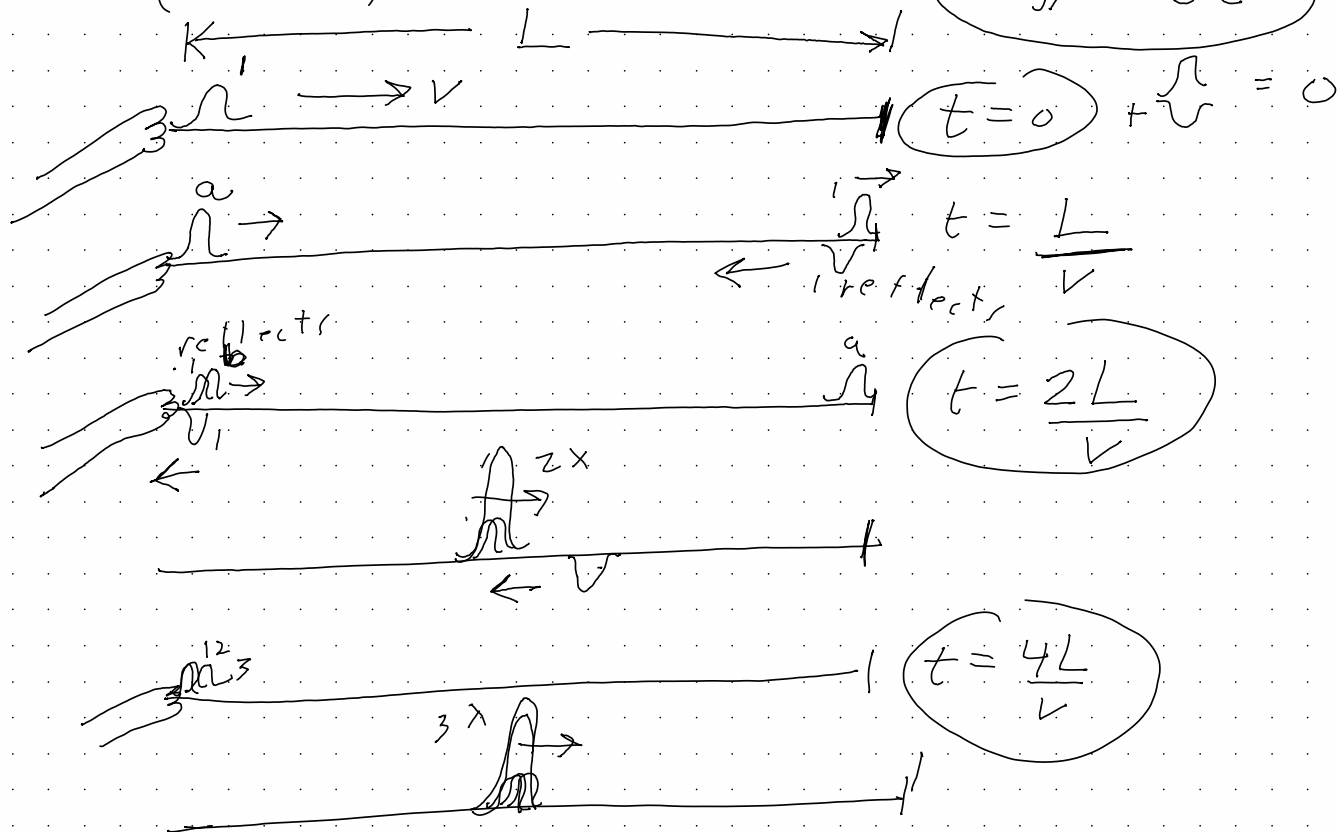 L
1 → v
t = 0 + = 0
a → 1 → t = L/v
← 1 reflects
reflects
1 b → a t = 2L/v
1
←
2x
←
1 2 3 t = 4L/v
3x